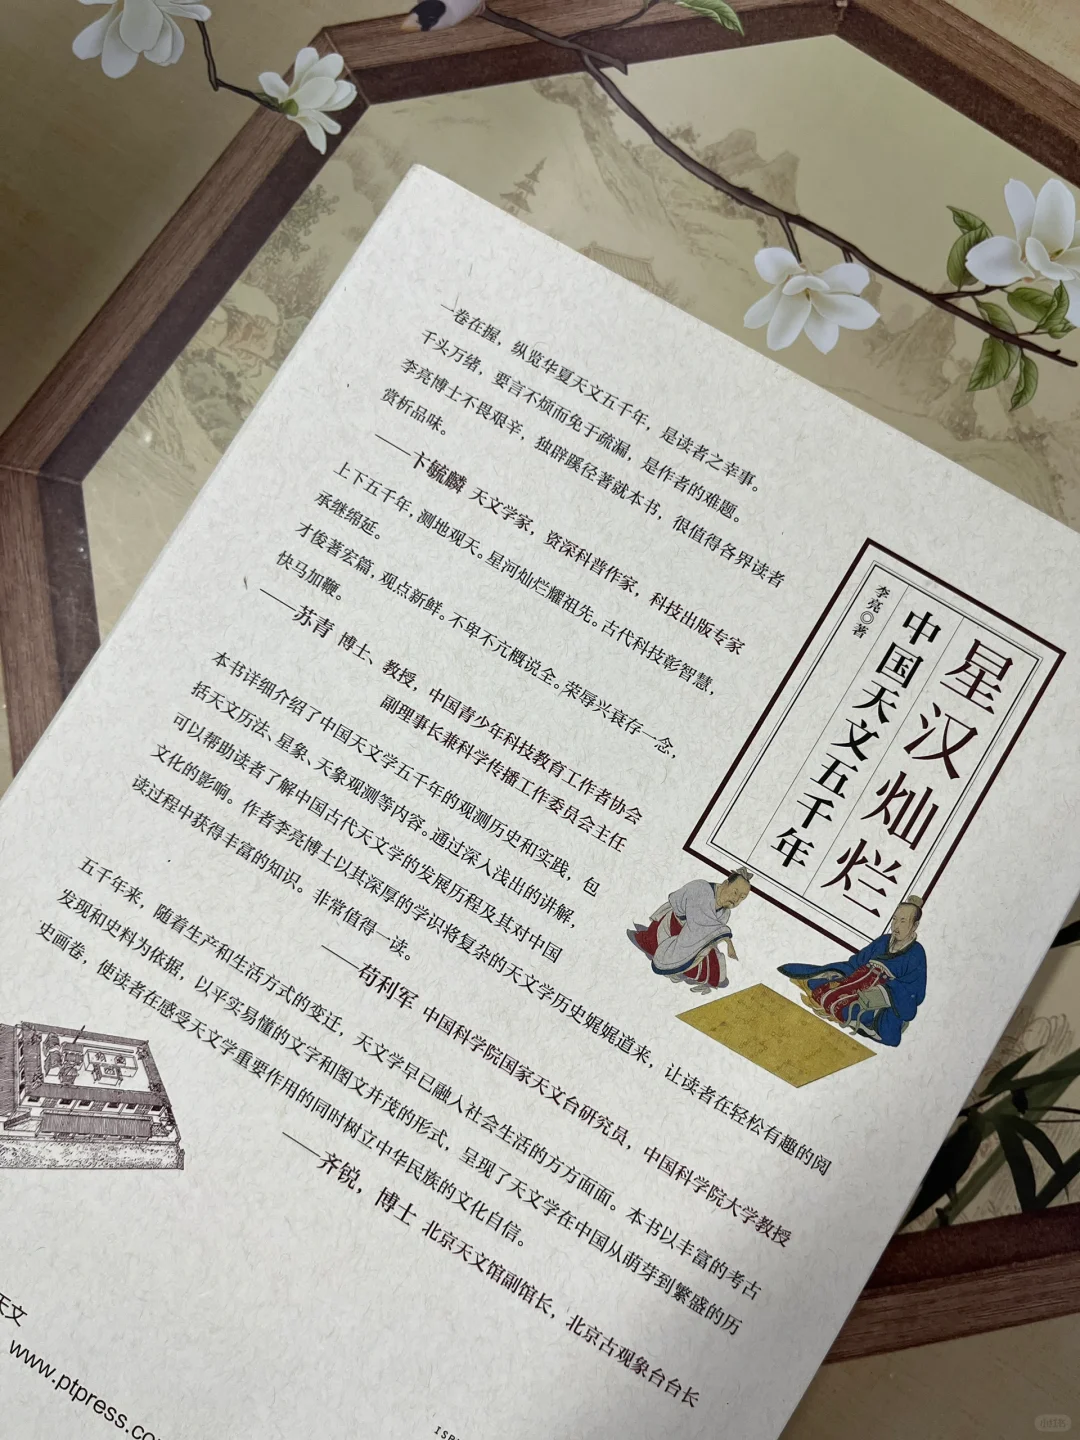 一卷在握，纵览华夏天文五千年，是读者之幸事。
千头万绪，要言不烦而免于疏漏，是作者的难题。
李亮博士不畏艰辛，独辟蹊径著就本书，很值得各界读者
赏析品味。
——卞毓麟 天文学家，资深科普作家，科技出版专家
上下五千年，测地观天。星河灿烂耀祖先。古代科技彰智慧，
承继绵延。
才俊著宏篇，观点新鲜。不卑不亢概说全。荣辱兴衰存一念，
快马加鞭。
——苏青 博士、教授，中国青少年科技教育工作者协会
副理事长兼科学传播工作委员会主任
本书详细介绍了中国天文学五千年的观测历史和实践，包
括天文历法、星象、天象观测等内容。通过深入浅出的讲解，
可以帮助读者了解中国古代天文学的发展历程及其对中国
文化的影响。作者李亮博士以其深厚的学识将复杂的天文学历史娓娓道来，让读者在轻松有趣的阅
读过程中获得丰富的知识。非常值得一读。
——苟利军 中国科学院国家天文台研究员，中国科学院大学教授
五千年来，随着生产和生活方式的变迁，天文学早已融入社会生活的方方面面。本书以丰富的考古
发现和史料为依据，以平实易懂的文字和图文并茂的形式，呈现了天文学在中国从萌芽到繁盛的历
史画卷，使读者在感受天文学重要作用的同时树立中华民族的文化自信。
——齐锐，博士 北京天文馆副馆长，北京古观象台台长
星汉灿烂
中国天文五千年
李亮◎著
天文
www.ptpress.co
ISB
小红书